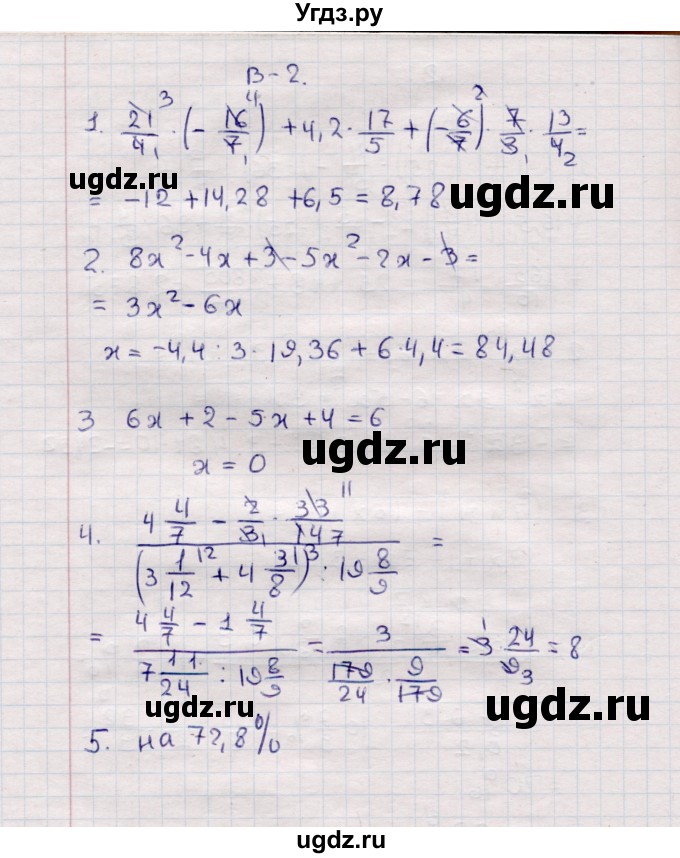 Угдз.ру
В-2.
1. 21/4 · (- 16/7) + 4,2 · 17/5 + (- 6/7) · 7/3 · 13/4 =
= -12 + 14,28 + 6,5 = 8,78
ugdz.ru
ugdz.ru
2. 8x² - 4x + 3 - 5x² - 2x - 3 =
= 3x² - 6x
x = -4,4 : 3 · 19,36 + 6·4,4 = 84,48
3 6x + 2 - 5x + 4 = 6
x = 0
ugdz.ru
4. (4 4/7 - 2/3 · 33/147) / ((3 1/12 + 4 3/8) : 19 8/9) =
= (4 4/7 - 1 4/7) / (7 11/24 : 19 8/9) = 3 / (179/24 · 9/179) = 3 · 24/9 = 8
ugdz.ru
ugdz.ru
5. на 72,8%
ugdz.ru